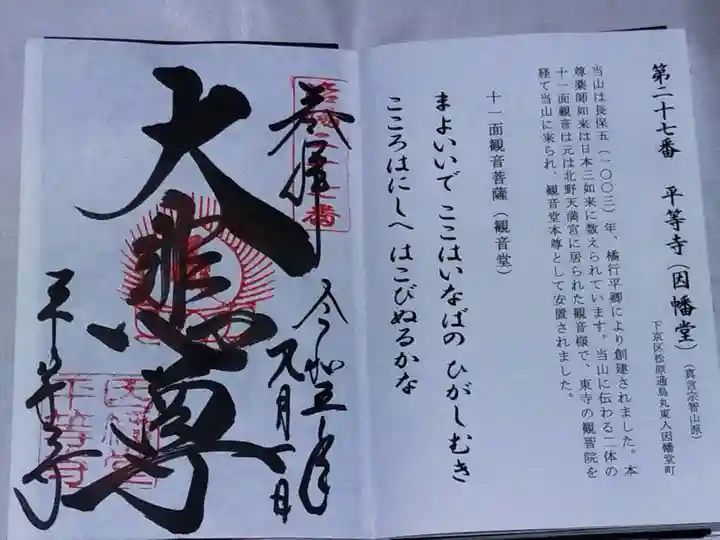 第二十七番 平等寺(因幡堂)(真言宗智山派)
下京区松原通烏丸東入因幡堂町
当山は長保五(一〇〇三)年、橘行平卿により創建されました。本
尊薬師如来は日本三如来に数えられています。当山に伝わる二体の
十一面観音は元は北野天満宮に居られた観音様で、東寺の観智院を
経て当山に来られ、観音堂本尊として安置されました。
十一面観音菩薩(観音堂)
まよいいで ここはいなばの ひがしむき
こころはにしへ はこびぬるかな
奉拝
令和五年
元月一日
大悲尊
平等寺
因幡堂
平等寺